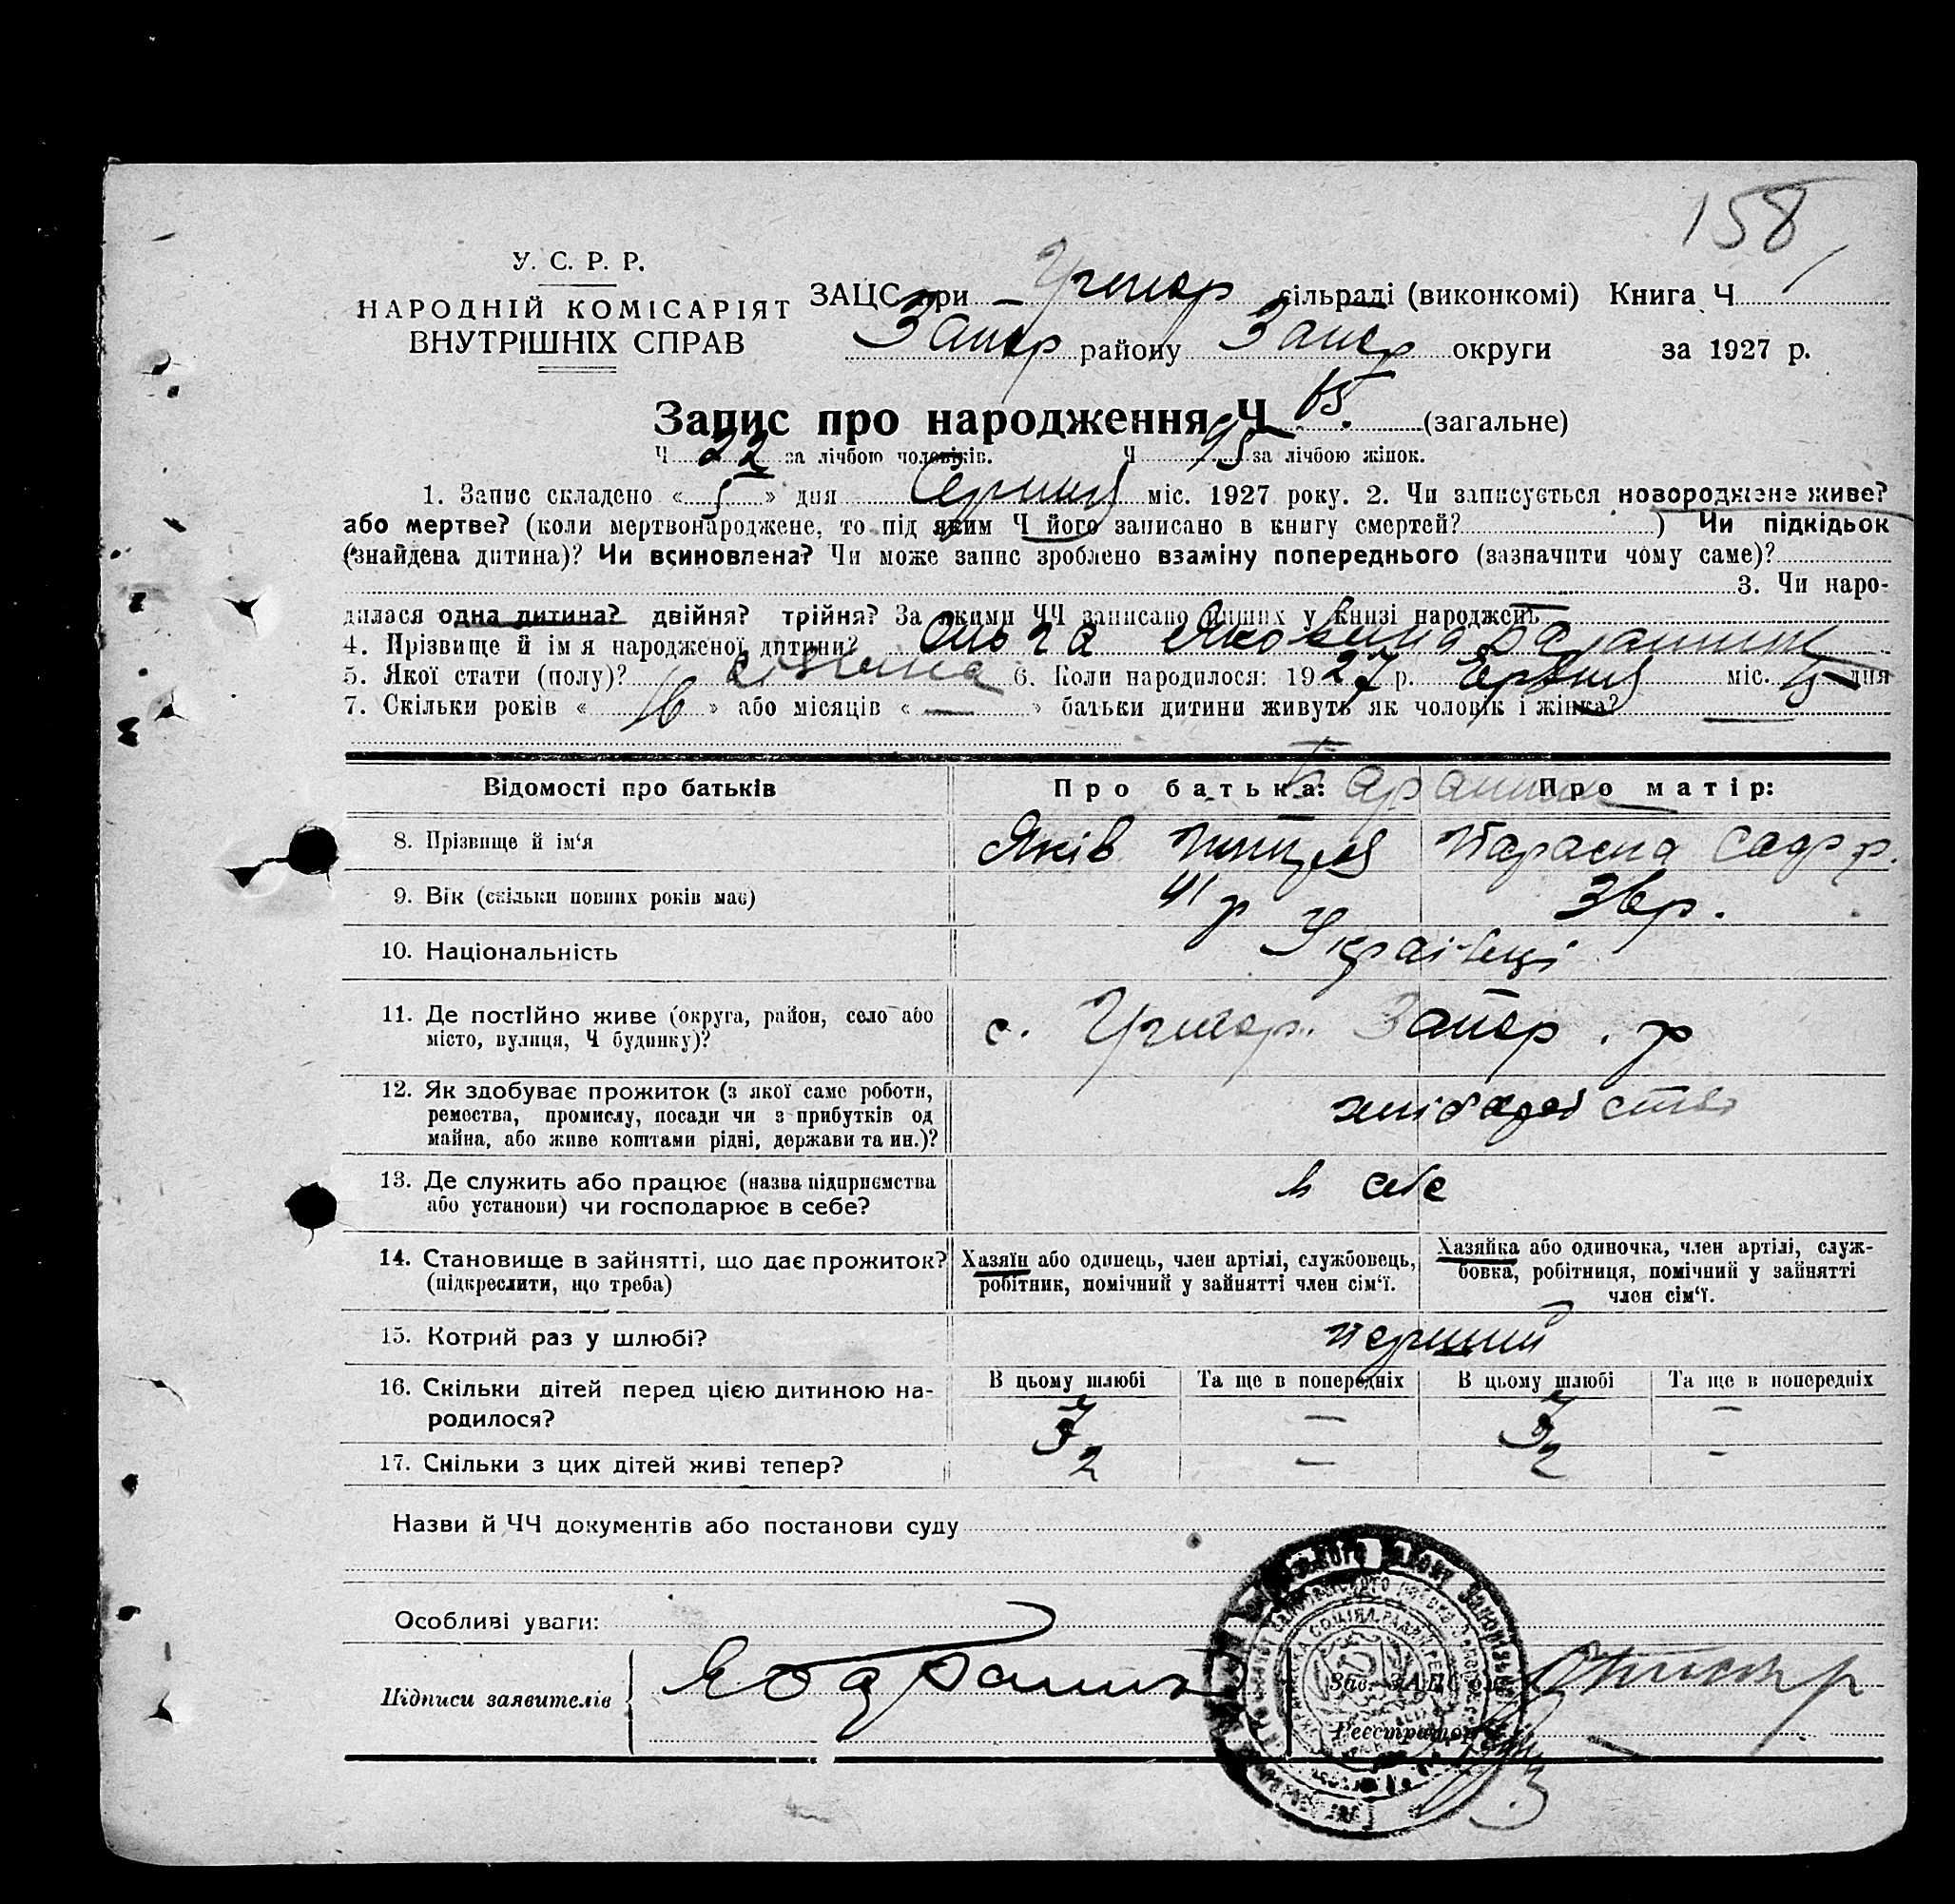 158
У. С. Р. Р.
НАРОДНІЙ КОМІСАРІЯТ
ВНУТРІШНІХ СПРАВ
ЗАЦС при сільраді (виконкомі) Книга Ч
Запор району Запор округи за 1927 р.
Запис про народження Ч (загальне)
Ч 22 за лічбою чоловіків. Ч за лічбою жінок.
1. Запис складено « 5 » дня Серпня міс. 1927 року. 2. Чи записується новороджене живе?
або мертве? (коли мертвонароджене, то під яким Ч його записано в книгу смертей? ) Чи підкідьок
(знайдена дитина)? Чи всиновлена? Чи може запис зроблено взаміну попереднього (зазначити чому саме)?
3. Чи наро-
дилася одна дитина? двійня? трійня? За якими ЧЧ записано инших у книзі народжень
4. Прізвище й ім я народженої дитини? Ольга Яковівна
5. Якої стати (полу)? 6. Коли народилося: 1927 р. Серпня міс. дня
7. Скільки років « » або місяців « — » батьки дитини живуть як чоловік і жінка?
Відомості про батьків Про батька: Про матір:
8. Прізвище й ім‘я Яків Параска
9. Вік (скільки повних років має) 41 р 36 р.
10. Національність Українці
11. Де постійно живе (округа, район, село або с. Запор. р
місто, вулиця, Ч будинку)?
12. Як здобуває прожиток (з якої саме роботи,
ремества, промислу, посади чи з прибутків од хліборобство
майна, або живе коштами рідні, держави та ин.)?
13. Де служить або працює (назва підприємства в себе
або установи) чи господарює в себе?
14. Становище в зайнятті, що дає прожиток? Хазяїн або одинець, член артілі, службовець, Хазяйка або одиночка, член артілі, служ-
(підкреслити, що треба) робітник, помічний у зайнятті член сім‘ї. бовка, робітниця, помічний у зайнятті
член сім‘ї.
15. Котрий раз у шлюбі? перший
16. Скільки дітей перед цією дитиною на- В цьому шлюбі Та ще в попередніх В цьому шлюбі Та ще в попередніх
родилося? — —
17. Скільки з цих дітей живі тепер? 2 — 2 -
Назви й ЧЧ документів або постанови суду
Особливі уваги:
Підписи заявителів Зав. ЗАЦС‘ом
Реєстратор